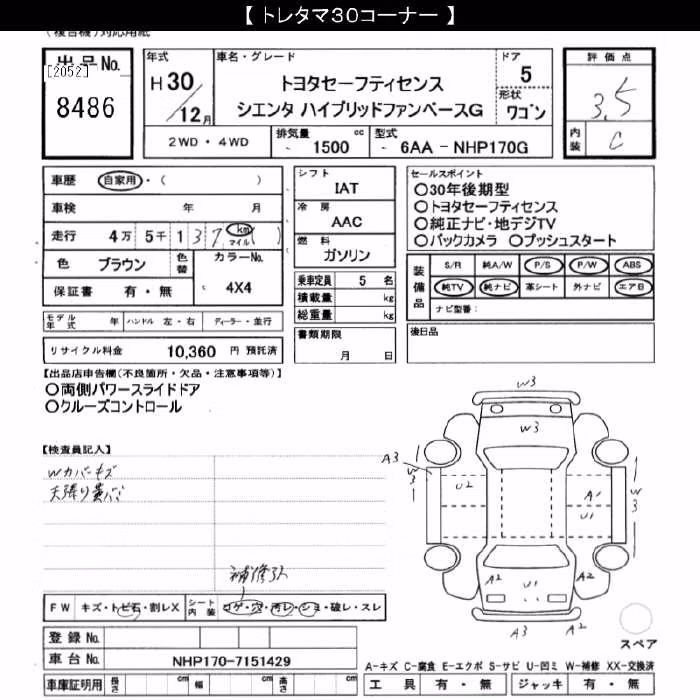 【 トレタマ30コーナー 】
(複合機)対応用紙
出品No.
[2052]
8486
年式
H30/12月
車名・グレード
トヨタセーフティセンス
シエンタ ハイブリッドファンベースG
ドア
5
形状
ワゴン
評価点
3.5
内装
C
2WD・4WD
排気量
- 1500 cc
型式
- 6AA - NHP170G
車歴 自家用・( )
車検 年 月
走行 4万 5千 1 3 7 km マイル ( )
色 ブラウン 色替
カラーNo.
4X4
保証書 有・無
モデル年式 年 ハンドル 左・右 ディーラー・並行
リサイクル料金 10,360 円 預託済
シフト
IAT
冷房
AAC
燃料
ガソリン
乗車定員 5 名
積載量 kg
総重量 kg
書類期限
月 日
セールスポイント
○30年後期型
○トヨタセーフティセンス
○純正ナビ・地デジTV
○バックカメラ ○プッシュスタート
装備品
S/R 純A/W P/S P/W ABS
純TV 純ナビ 革シート 外ナビ エアB
ナビ型番:
後日品
【出品店申告欄(不良箇所・欠品・注意事項等)】
○両側パワースライドドア
○クルーズコントロール
【検査員記入】
Wカバーキズ
天張り黄バミ
補修有
FW キズ・トビ石・割レX
シート内装 コゲ・穴・汚レ・シミ・破レ・スレ
登録No.
車台No. NHP170-7151429
車庫証明用 長さ cm 幅 cm 高さ cm
W3
W3
A3
W3
U2
A1
U1
W3
A2
U1
A2
A3
A2
スペア
A-キズ C-腐食 E-エクボ S-サビ U-凹ミ W-補修 XX-交換済
工具 有・無 ジャッキ 有・無